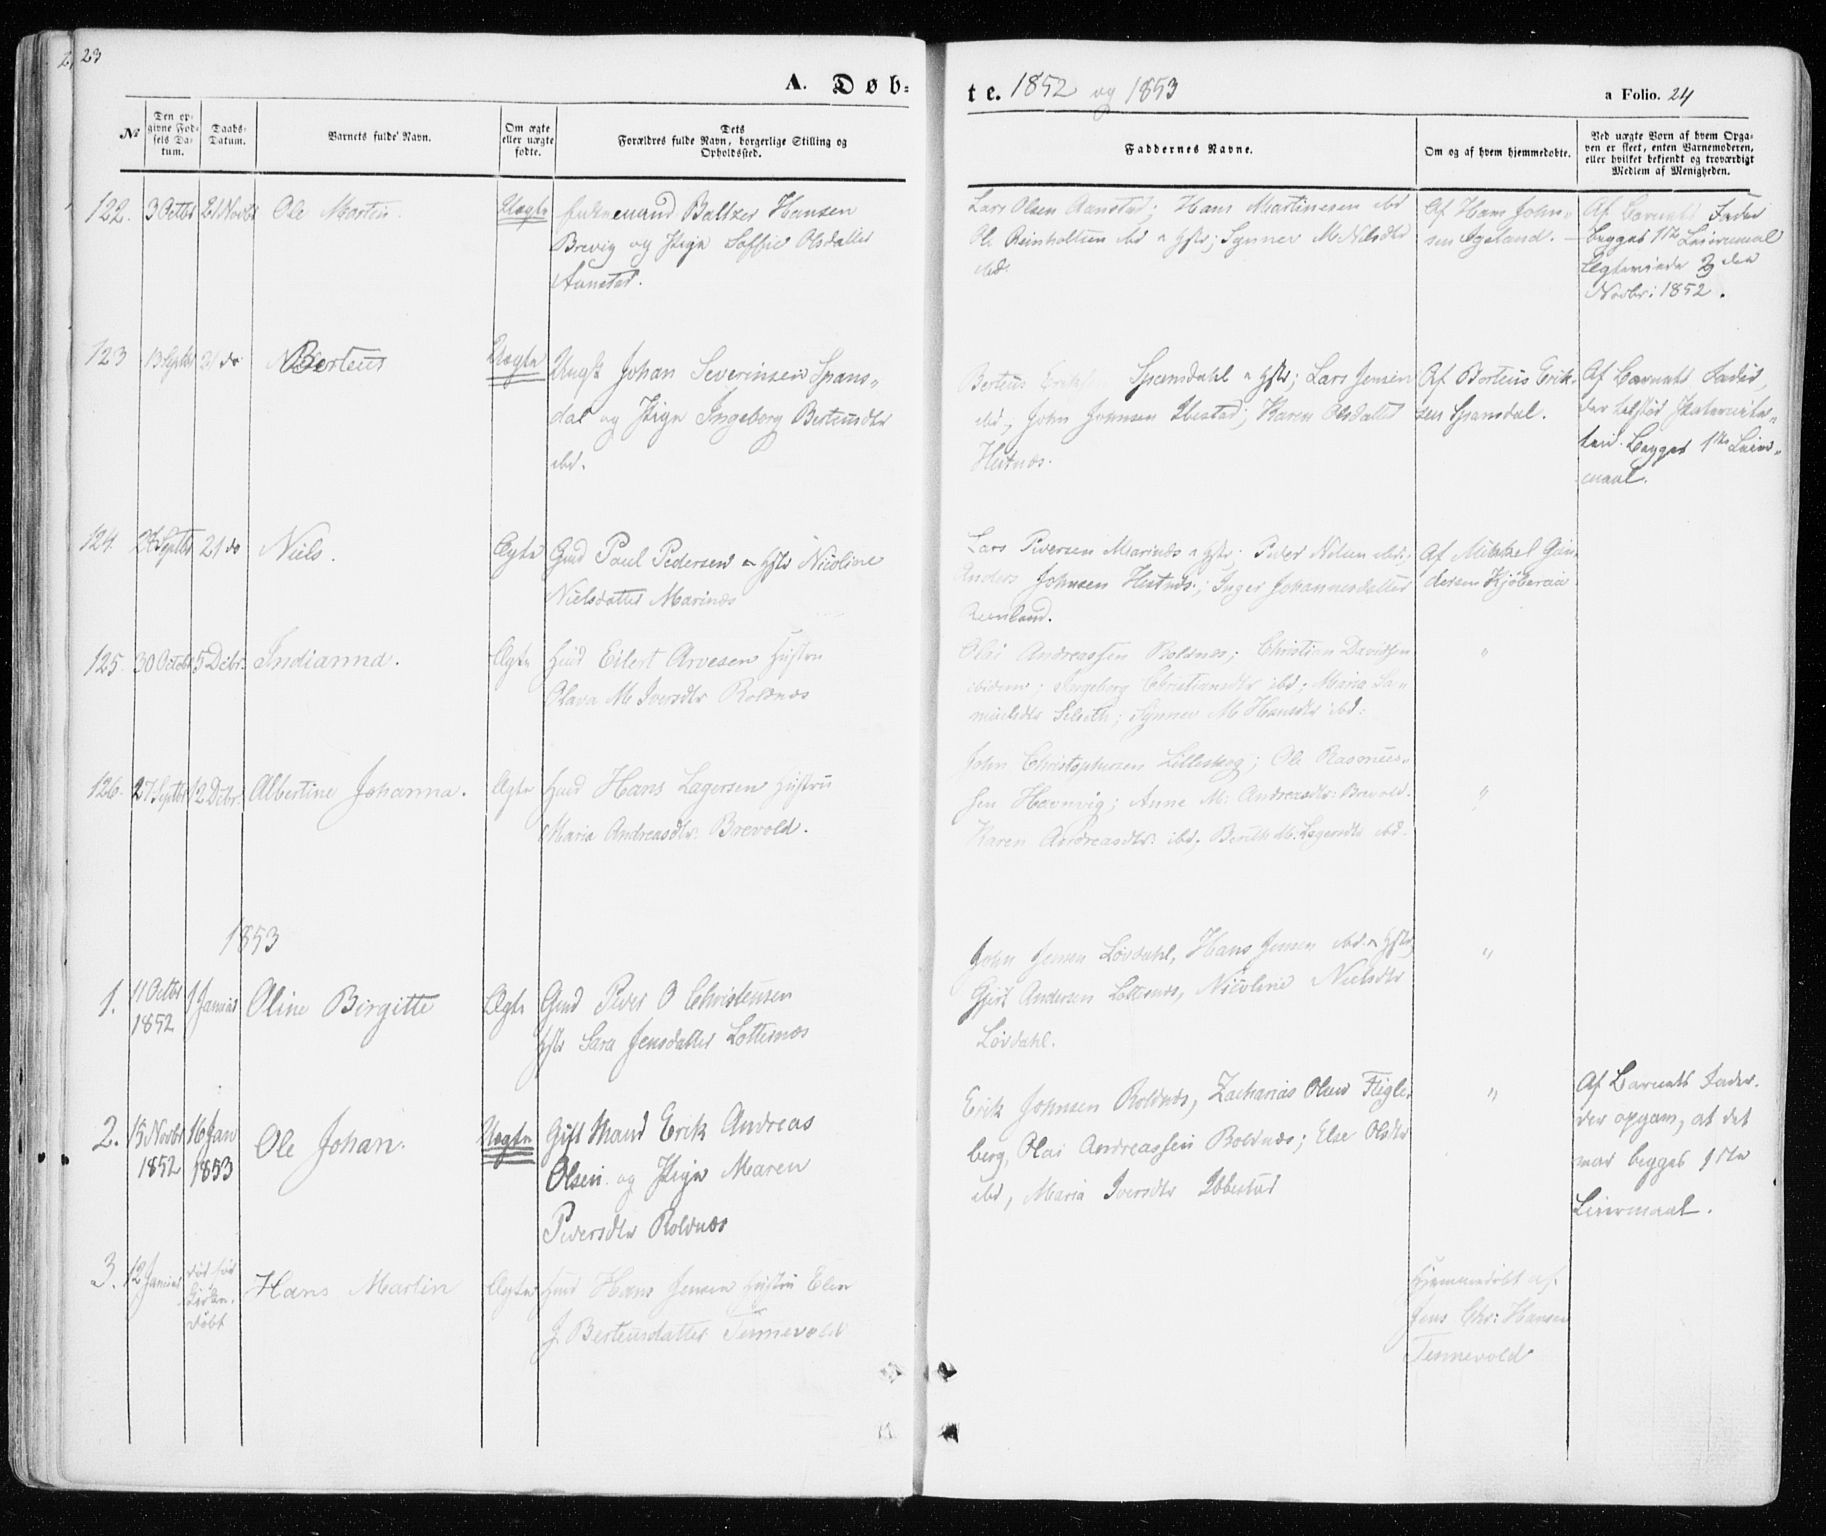 23
A. Døb-
te. 1852 og 1853
a Folio. 24
№
Den op-
givne Fød-
sels Da-
tum.
Daabs-
Datum.
Barnets fulde Navn.
Om ægte
eller uægte
fødte.
Dets
Forældres fulde Navn, borgerlige Stilling og
Opholdssted.
Faddernes Navne.
Om og af hvem hjemmedøbte.
Ved uægte Børn af hvem Opga-
ven er skeet, enten Barnemoderen,
eller hvilket bekjendt og troværdigt
Medlem af Menigheden.
122. 3 Octbr 21 Novbr Ole Martin. Uægte
Enkemand Baltzer Hansen
Brevig og Pige Soffie Olsdatter
Aanstad.
Lars Olsen Aanstad; Hans Martinesen ibd
Ole Reinholtsen ibd Hstr; Synnev M Nilsdtr
ibd.
Af Hans John-
sen
Af Barnets Fader
begges 1ste Leiermaal
Ægteviede den
Novbr: 1852.
123 13 Septbr 21 do Berteus Uægte
Ungk Johan Severinsen Spans-
dal og Pige Ingeborg Berteusdtr
ibd.
Berteus Eriksen Spansdahl Hstr; Lars Jensen
ibd; John Johnsen Ibestad; Karen Olsdatter
Hestnæs.
Af Berteus Erik-
sen Spansdal.
Af Barnets Fader,
der tilstod Paternite-
ten. Begges 1ste Leier-
maal.
124. 28 Septbr 21 do Niels. Ægte
Gmd Paul Pedersen Hstr Nicoline
Nielsdatter Marinæs
Lars Pedersen Marinæs Hstr; Peder Nilsen ibd;
Anders Johnsen Hestnæs; Inger Johannesdatter
Reenland.
Af Mikkel Gun-
dersen Kjøberaa
125. 30 Octobr 5 Decbr. Indianna. Ægte
Huusmd Eilert Arvesen Hustru
Olava M. Iversdtr Roldnæs
Olai Andreassen Roldnæs; Christian Davidsen
ibidem; Ingeborg Christiansdtr ibd; Maria Sa-
muelsdtr Selseth; Synnev M Hansdtr ibd.
"
126. 27 Septbr 12 Decbr. Albertine Johanna. Ægte
Huusmd Hans Lagersen Hustru
Maria Andreasdtr. Brevold.
John Christophersen Lilleberg; Ole Rasmus-
sen Havnvig; Anne M: Andreasdtr: Brevold.
Karen Andreasdtr: ibd; Berith M: Lagersdtr ibd.
"
1853
1. 11 Octbr
1852
1 Januar Oline Birgitte Ægte
Gmd Peder O Christensen
Hstr Sara Jensdatter Lotternæs
John Jensen Løvdahl, Hans Jensen ibd Hstr,
Gjert Andersen Lotternæs, Nicoline Nielsdtr
Løvdahl.
"
2. 15 Novbr
1852
16 Jan
1853
Ole Johan. Uægte
Gift Mand Erik Andreas
Olsen og Pige Maren
Pedersdtr Roldnæs
Erik Johnsen Roldnæs, Zacharias Olsen Fugle-
berg, Olai Andreassen Roldnæs; Else Olsdtr
ibd, Maria Iversdtr Ibbestad
"
Af Barnets Fader.
der opgav, at det
var begges 1ste
Leiermaal.
3. 12 Januar
død før
Kirke-
døbt
Hans Martin Ægte
Huusmd Hans Jensen Hustru Elen
J. Berteusdatter Tennevold
Hjemmedøbt af
Jens Chr: Hansen
Tennevold